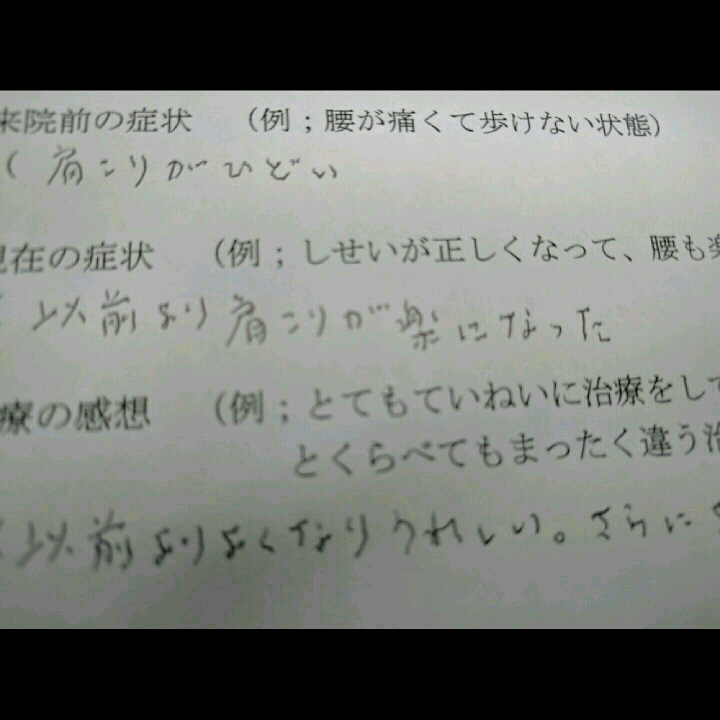 来院前の症状 (例；腰が痛くて歩けない状態)
( 肩こりがひどい
現在の症状 (例；しせいが正しくなって、腰も楽
以前より肩こりが楽になった
療の感想 (例；とてもていねいに治療をして
とくらべてもまったく違う治
以前よりよくなりうれしい。さらに